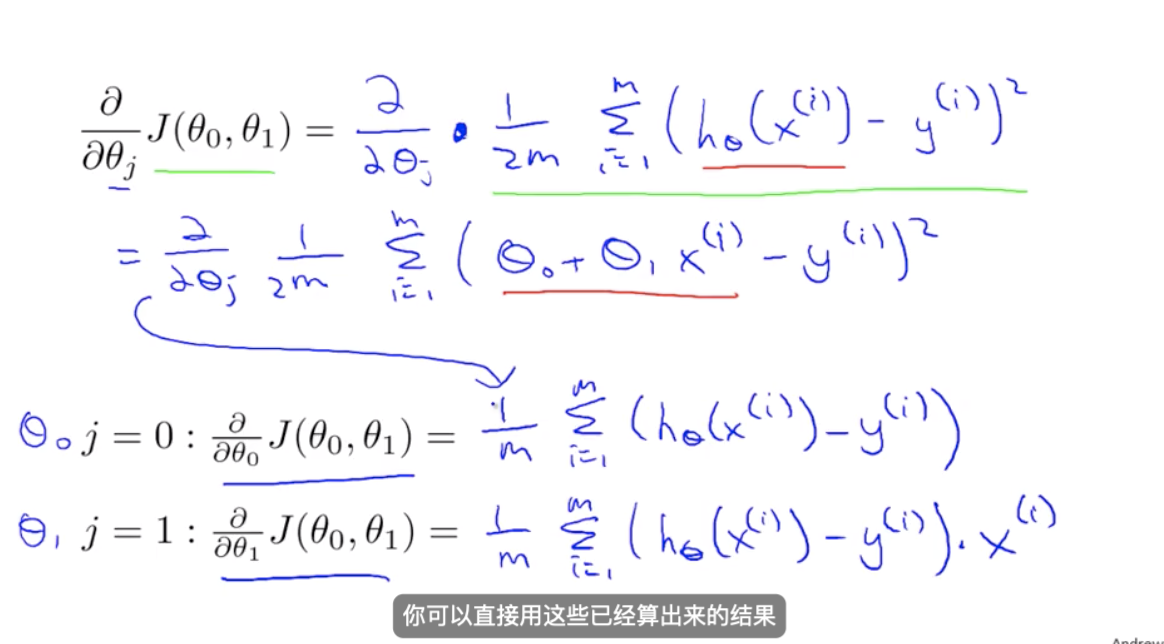 ∂/∂θj J(θ0, θ1) = ∂/∂θj · 1/2m Σ_{i=1}^{m} (hθ(x^(i)) − y^(i))²
= ∂/∂θj 1/2m Σ_{i=1}^{m} (θ0 + θ1 x^(i) − y^(i))²
θ0 j = 0 : ∂/∂θ0 J(θ0, θ1) = 1/m Σ_{i=1}^{m} (hθ(x^(i)) − y^(i))
θ1 j = 1 : ∂/∂θ1 J(θ0, θ1) = 1/m Σ_{i=1}^{m} (hθ(x^(i)) − y^(i)) · x^(i)
你可以直接用这些已经算出来的结果
Andrew